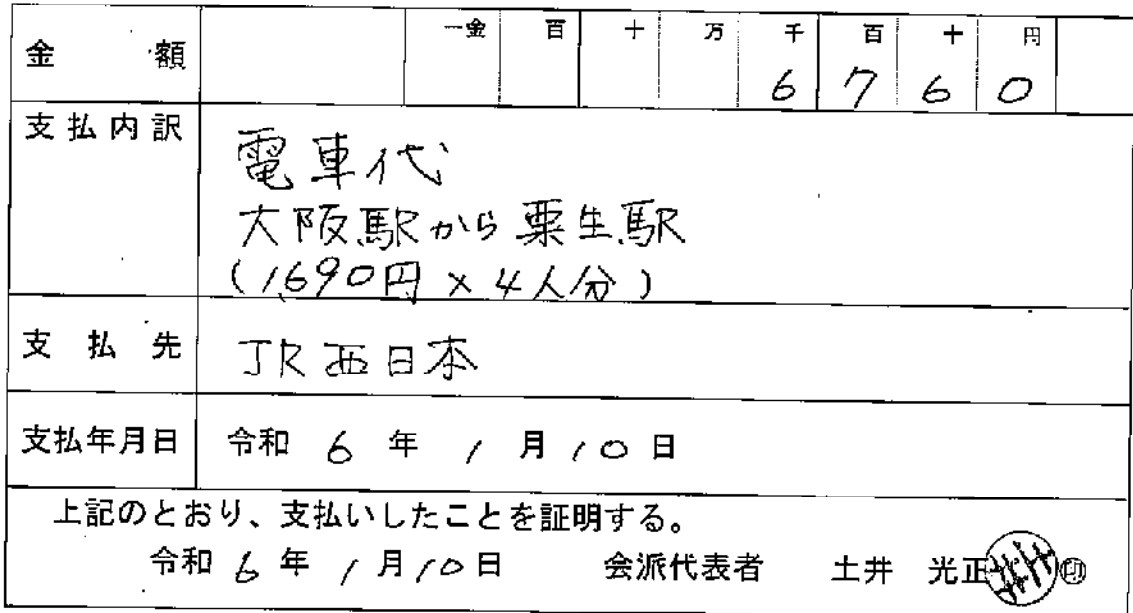 金額 一金 百 十 万 千 百 十 円
6 7 6 0
支払内訳
電車代
大阪駅から粟生駅
(1,690円×4人分)
支払先 JR西日本
支払年月日 令和 6 年 1 月 10 日
上記のとおり、支払いしたことを証明する。
令和 6 年 1 月 10 日 会派代表者 土井 光正 印